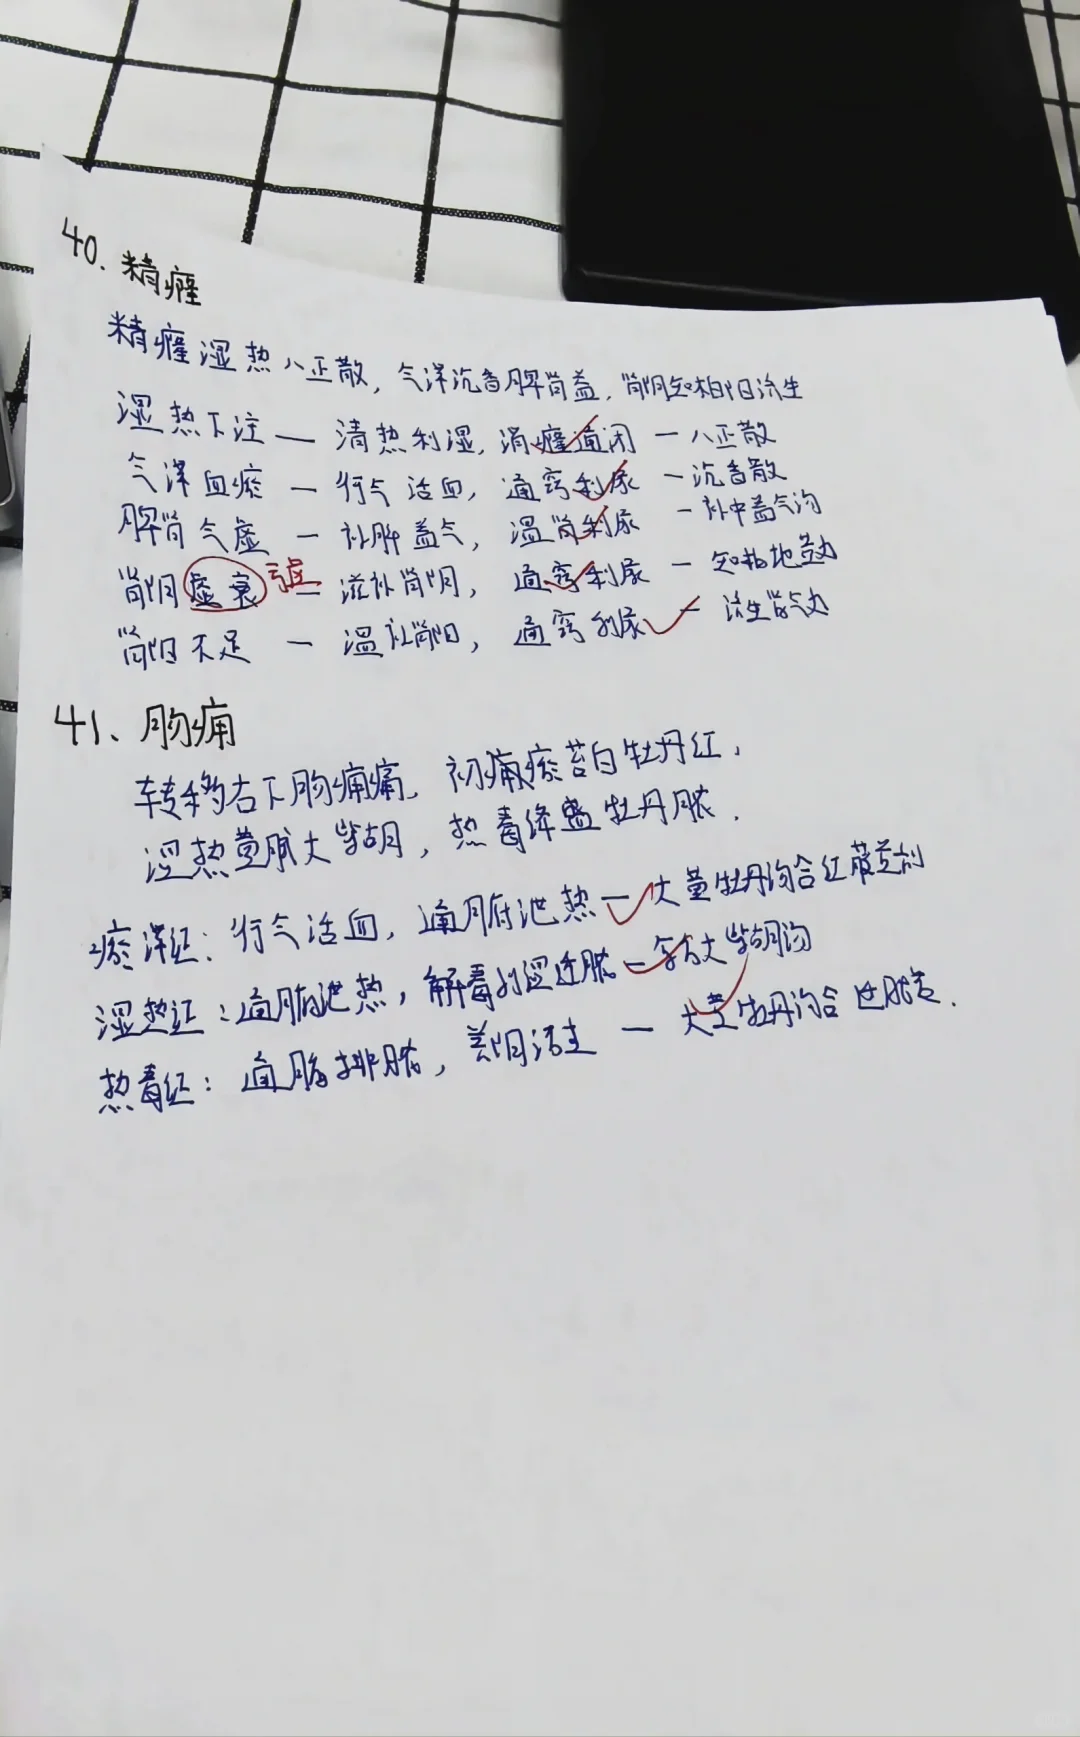 40. 精癃
精癃湿热八正散, 气滞沉香脾肾益, 肾阴知柏阳济生
湿热下注 — 清热利湿, 消癃通闭 — 八正散
气滞血瘀 — 行气活血, 通窍利尿 — 沉香散
脾肾气虚 — 补脾益气, 温肾利尿 — 补中益气汤
肾阴虚衰 亏虚 — 滋补肾阴, 通窍利尿 — 知柏地黄丸
肾阳不足 — 温补肾阳, 通窍利尿 — 济生肾气丸
41、肠痈
转移右下肠痈痛, 初痈瘀苔白牡丹红,
湿热黄腻大柴胡, 热毒绛盛牡丹脓.
瘀滞证: 行气活血, 通腑泄热 — 大黄牡丹汤合红藤煎剂
湿热证: 通腑泄热, 解毒利湿透脓 — 大柴胡汤
热毒证: 通腑排脓, 养阴清热 — 大黄牡丹汤合透脓散.